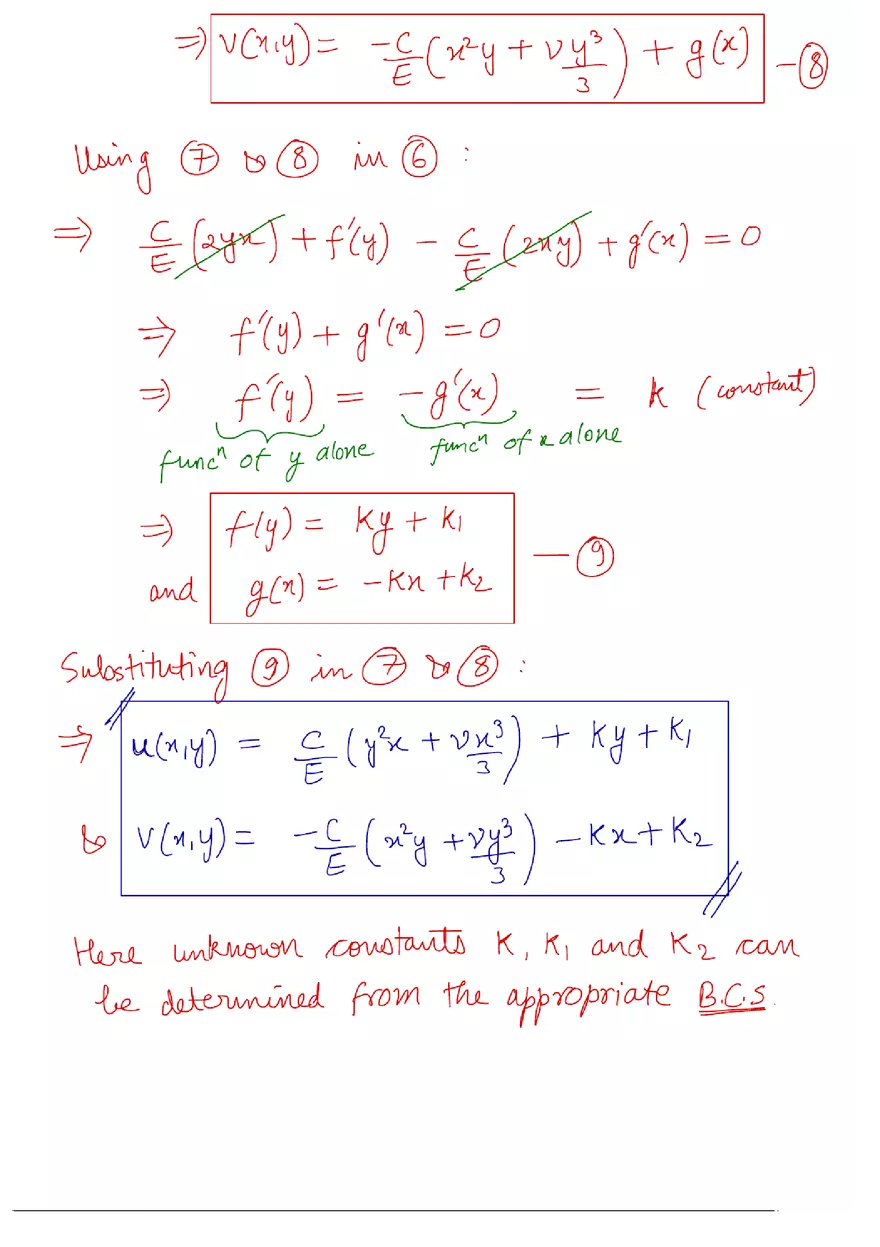 ⇒ v(x,y) = -C/E (x²y + νy³/3) + g(x) - ⑧
Using ⑦ & ⑧ in ⑥ :
⇒ C/E (2yx) + f'(y) - C/E (2xy) + g'(x) = 0
⇒ f'(y) + g'(x) = 0
⇒ f'(y) = -g'(x) = k (constant)
funcⁿ of y alone funcⁿ of x alone
⇒ f(y) = Ky + K₁
and g(x) = -Kx + K₂ — ⑨
Substituting ⑨ in ⑦ & ⑧ :
⇒ u(x,y) = C/E (y²x + νx³/3) + Ky + K₁
& v(x,y) = -C/E (x²y + νy³/3) - Kx + K₂
Here unknown constants K, K₁ and K₂ can
be determined from the appropriate B.C.S.